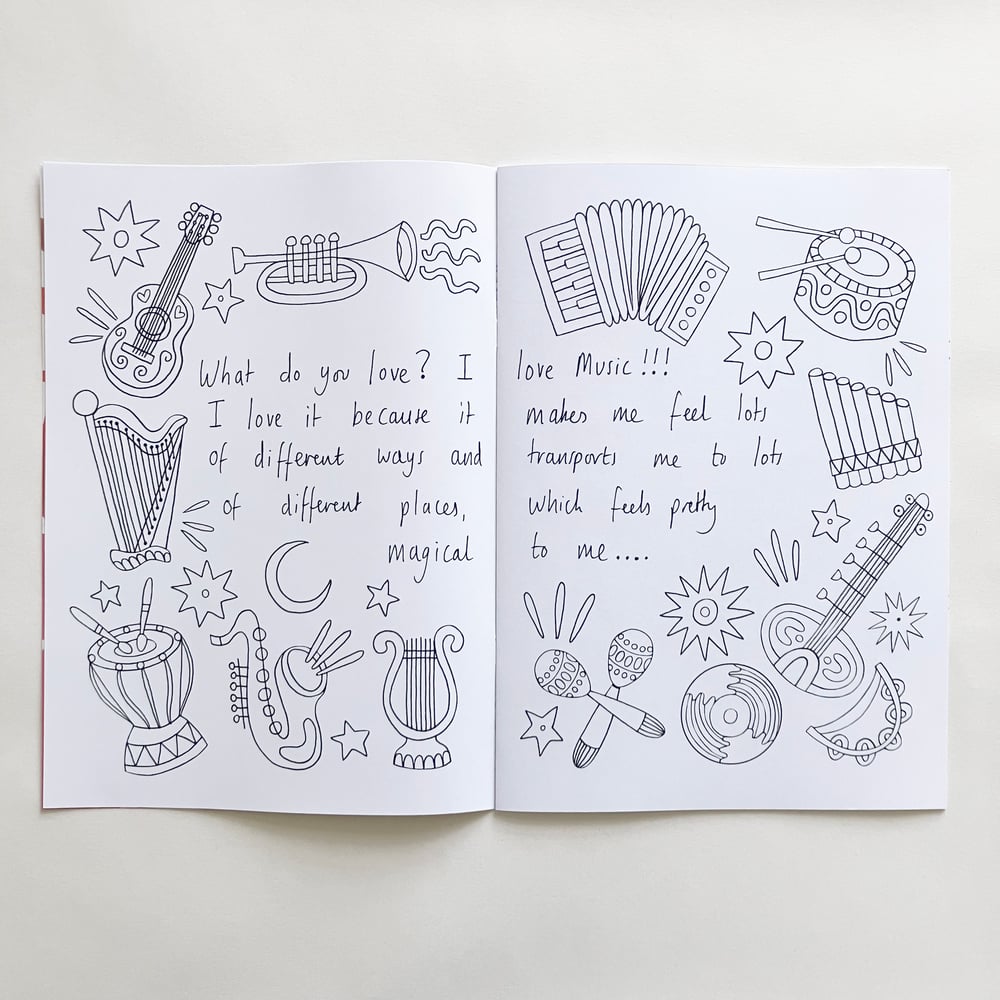 What do you love? I love Music!!!
I love it because it makes me feel lots
of different ways and transports me to lots
of different places, which feels pretty
magical to me....